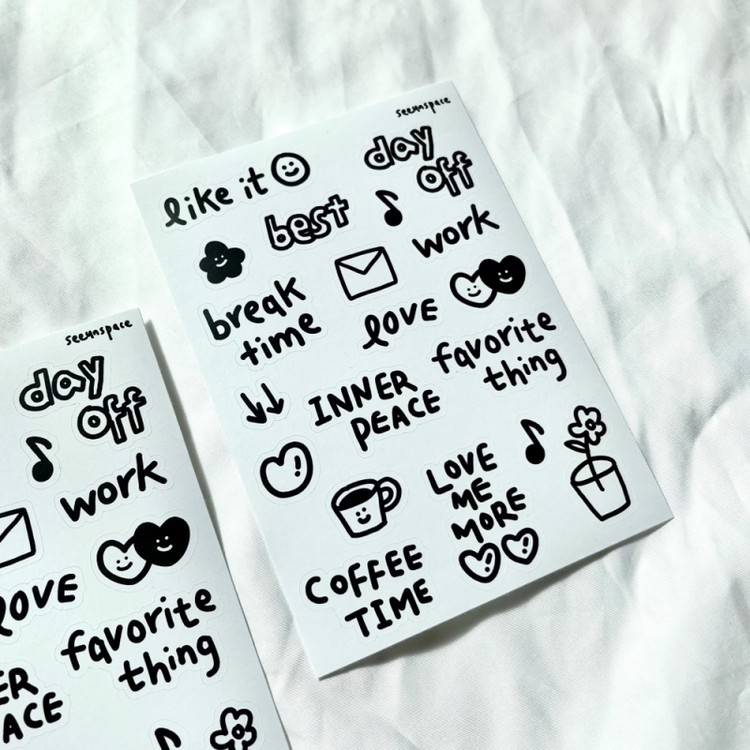 seeunspace
like it
day
off
best
work
break
time
love
favorite
thing
INNER
PEACE
LOVE
ME
MORE
COFFEE
TIME
seeunspace
day
off
work
love
favorite
thing
ER
ACE